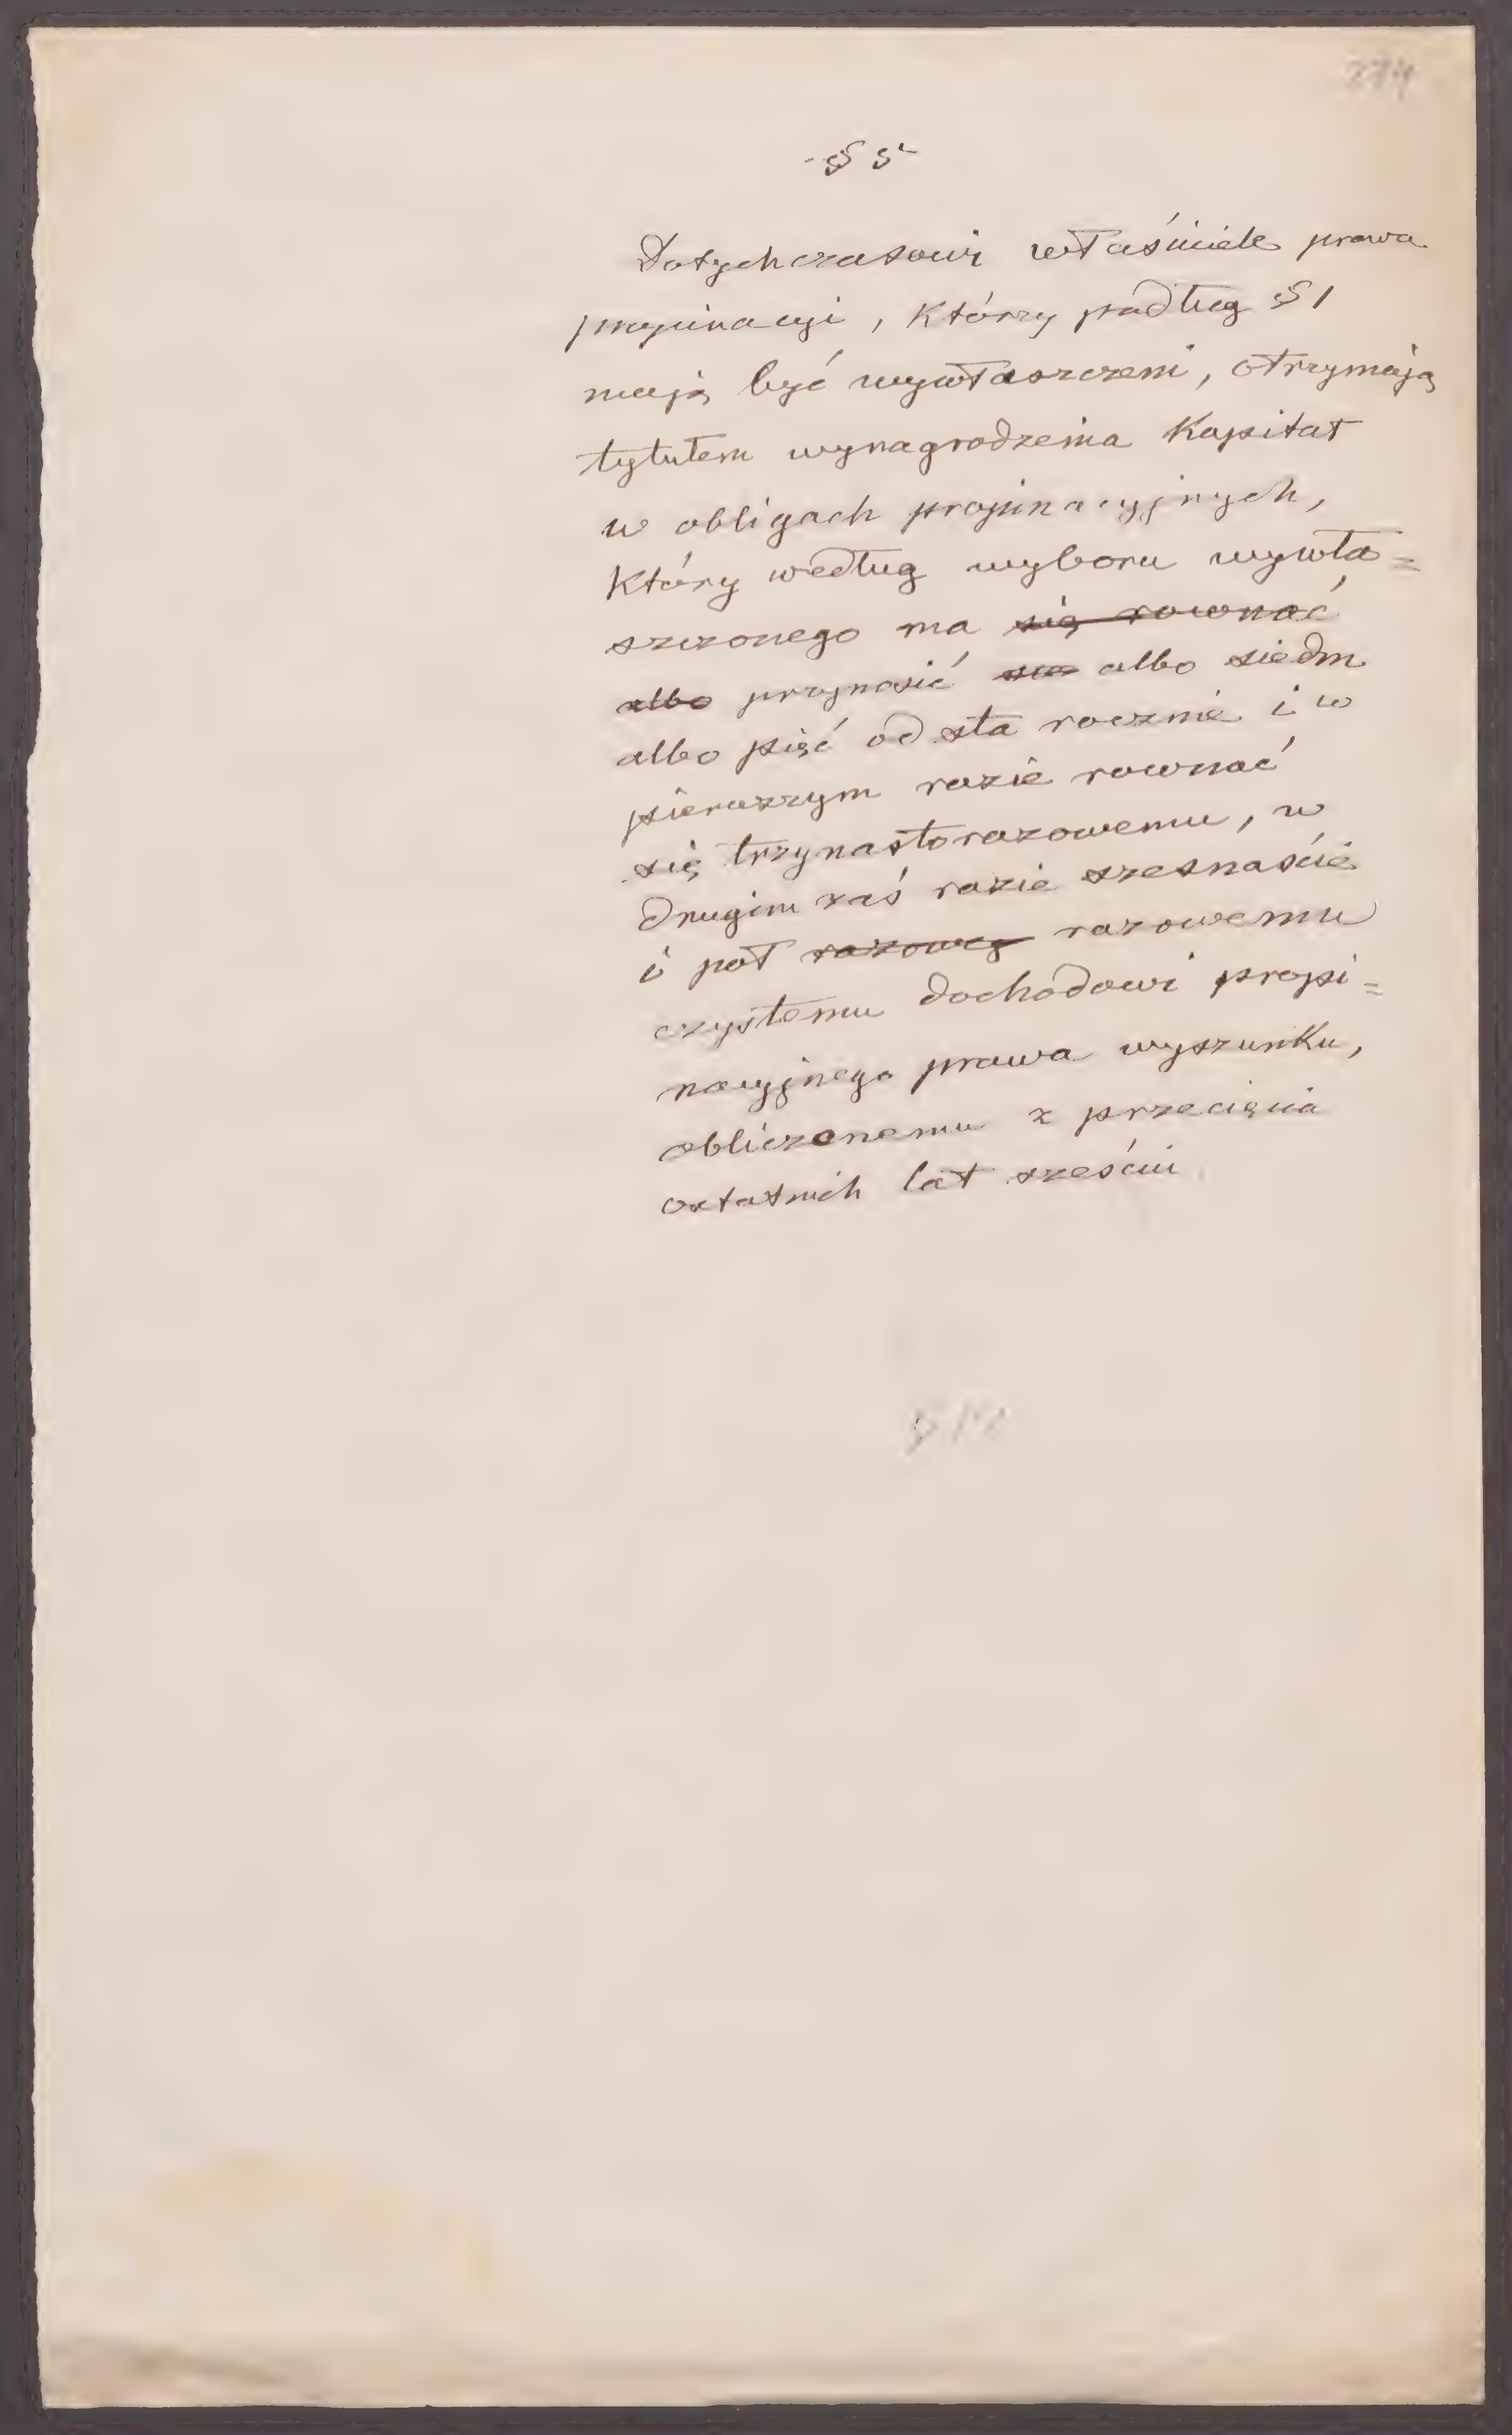 274
- § 5
Dotychczasowi właściciele prawa
propinacyi, którzy podług § 1
mają być wywłaszczeni, otrzymają
tytułem wynagrodzenia kapitał
w obligach propinacyjnych,
który według wyboru wywła=
szczonego ma się rownać
albo przynosić albo siedm
albo pięć od sta rocznie i w
pierwszym razie rownać
się trzynastorazowemu, w
drugim zaś razie szesnaście
i poł razoweg razowemu
czystemu dochodowi propi=
nacyjnego prawa wyszunku,
obliczonemu z przecięcia
ostatnich lat sześciu